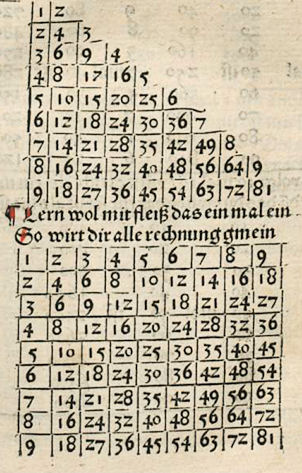 1 2
2 4 3
3 6 9 4
4 8 12 16 5
5 10 15 20 25 6
6 12 18 24 30 36 7
7 14 21 28 35 42 49 8
8 16 24 32 40 48 56 64 9
9 18 27 36 45 54 63 72 81
¶ Lern wol mit fleiß das ein mal ein
So wirt dir alle rechnung gmein
1 2 3 4 5 6 7 8 9
2 4 6 8 10 12 14 16 18
3 6 9 12 15 18 21 24 27
4 8 12 16 20 24 28 32 36
5 10 15 20 25 30 35 40 45
6 12 18 24 30 36 42 48 54
7 14 21 28 35 42 49 56 63
8 16 24 32 40 48 56 64 72
9 18 27 36 45 54 63 72 81